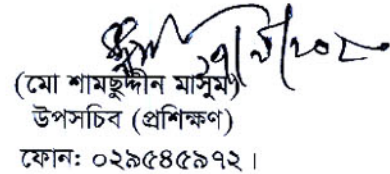 (মো শামছুদ্দীন মাসুম)
উপসচিব (প্রশিক্ষণ)
ফোন: ০২৯৫৪৫৯৭২।